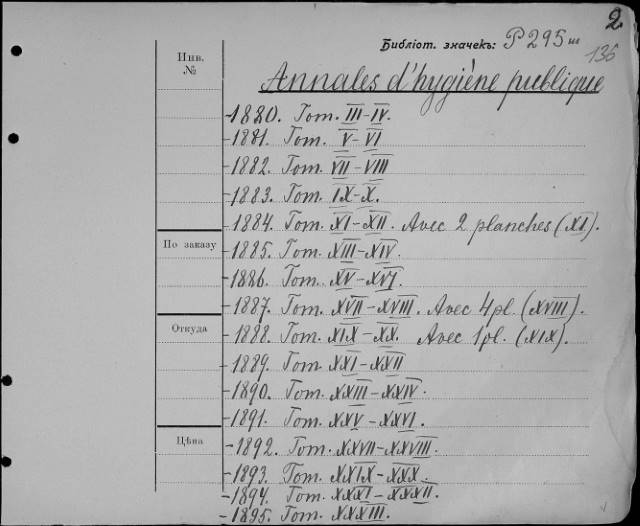 2.
Библіот. значекъ: P 295 III
136
Инв.
№
Annales d'hygiène publique
-1880. Tom. III-IV.
-1881. Tom. V-VI
-1882. Tom. VII-VIII
-1883. Tom. IX-X.
-1884. Tom. XI-XII. Avec 2 planches (XI).
По заказу
-1885. Tom. XIII-XIV.
-1886. Tom. XV-XVI
-1887. Tom. XVII-XVIII. Avec 4 pl. (XVIII).
Откуда
-1888. Tom. XIX-XX. Avec 1 pl. (XIX).
-1889. Tom. XXI-XXII
-1890. Tom. XXIII-XXIV.
-1891. Tom. XXV-XXVI.
Цѣна
-1892. Tom. XXVII-XXVIII.
-1893. Tom. XXIX-XXX.
-1894. Tom. XXXI-XXXII.
-1895. Tom. XXXIII.